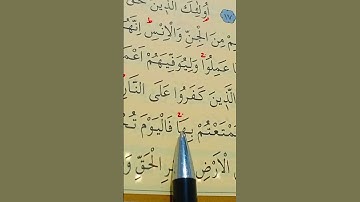 ١٧ أُولٰٓئِكَ الَّذ۪ينَ حَقَّ
مِنَ الْجِنِّ وَالْاِنْسِۜ اِنَّهُمْ
عَمِلُواۚ وَلِيُوَفِّيَهُمْ
الَّذ۪ينَ كَفَرُوا عَلَى النَّارِۜ
بِهَاۚ فَالْيَوْمَ
الْاَرْضِ الْحَقِّ